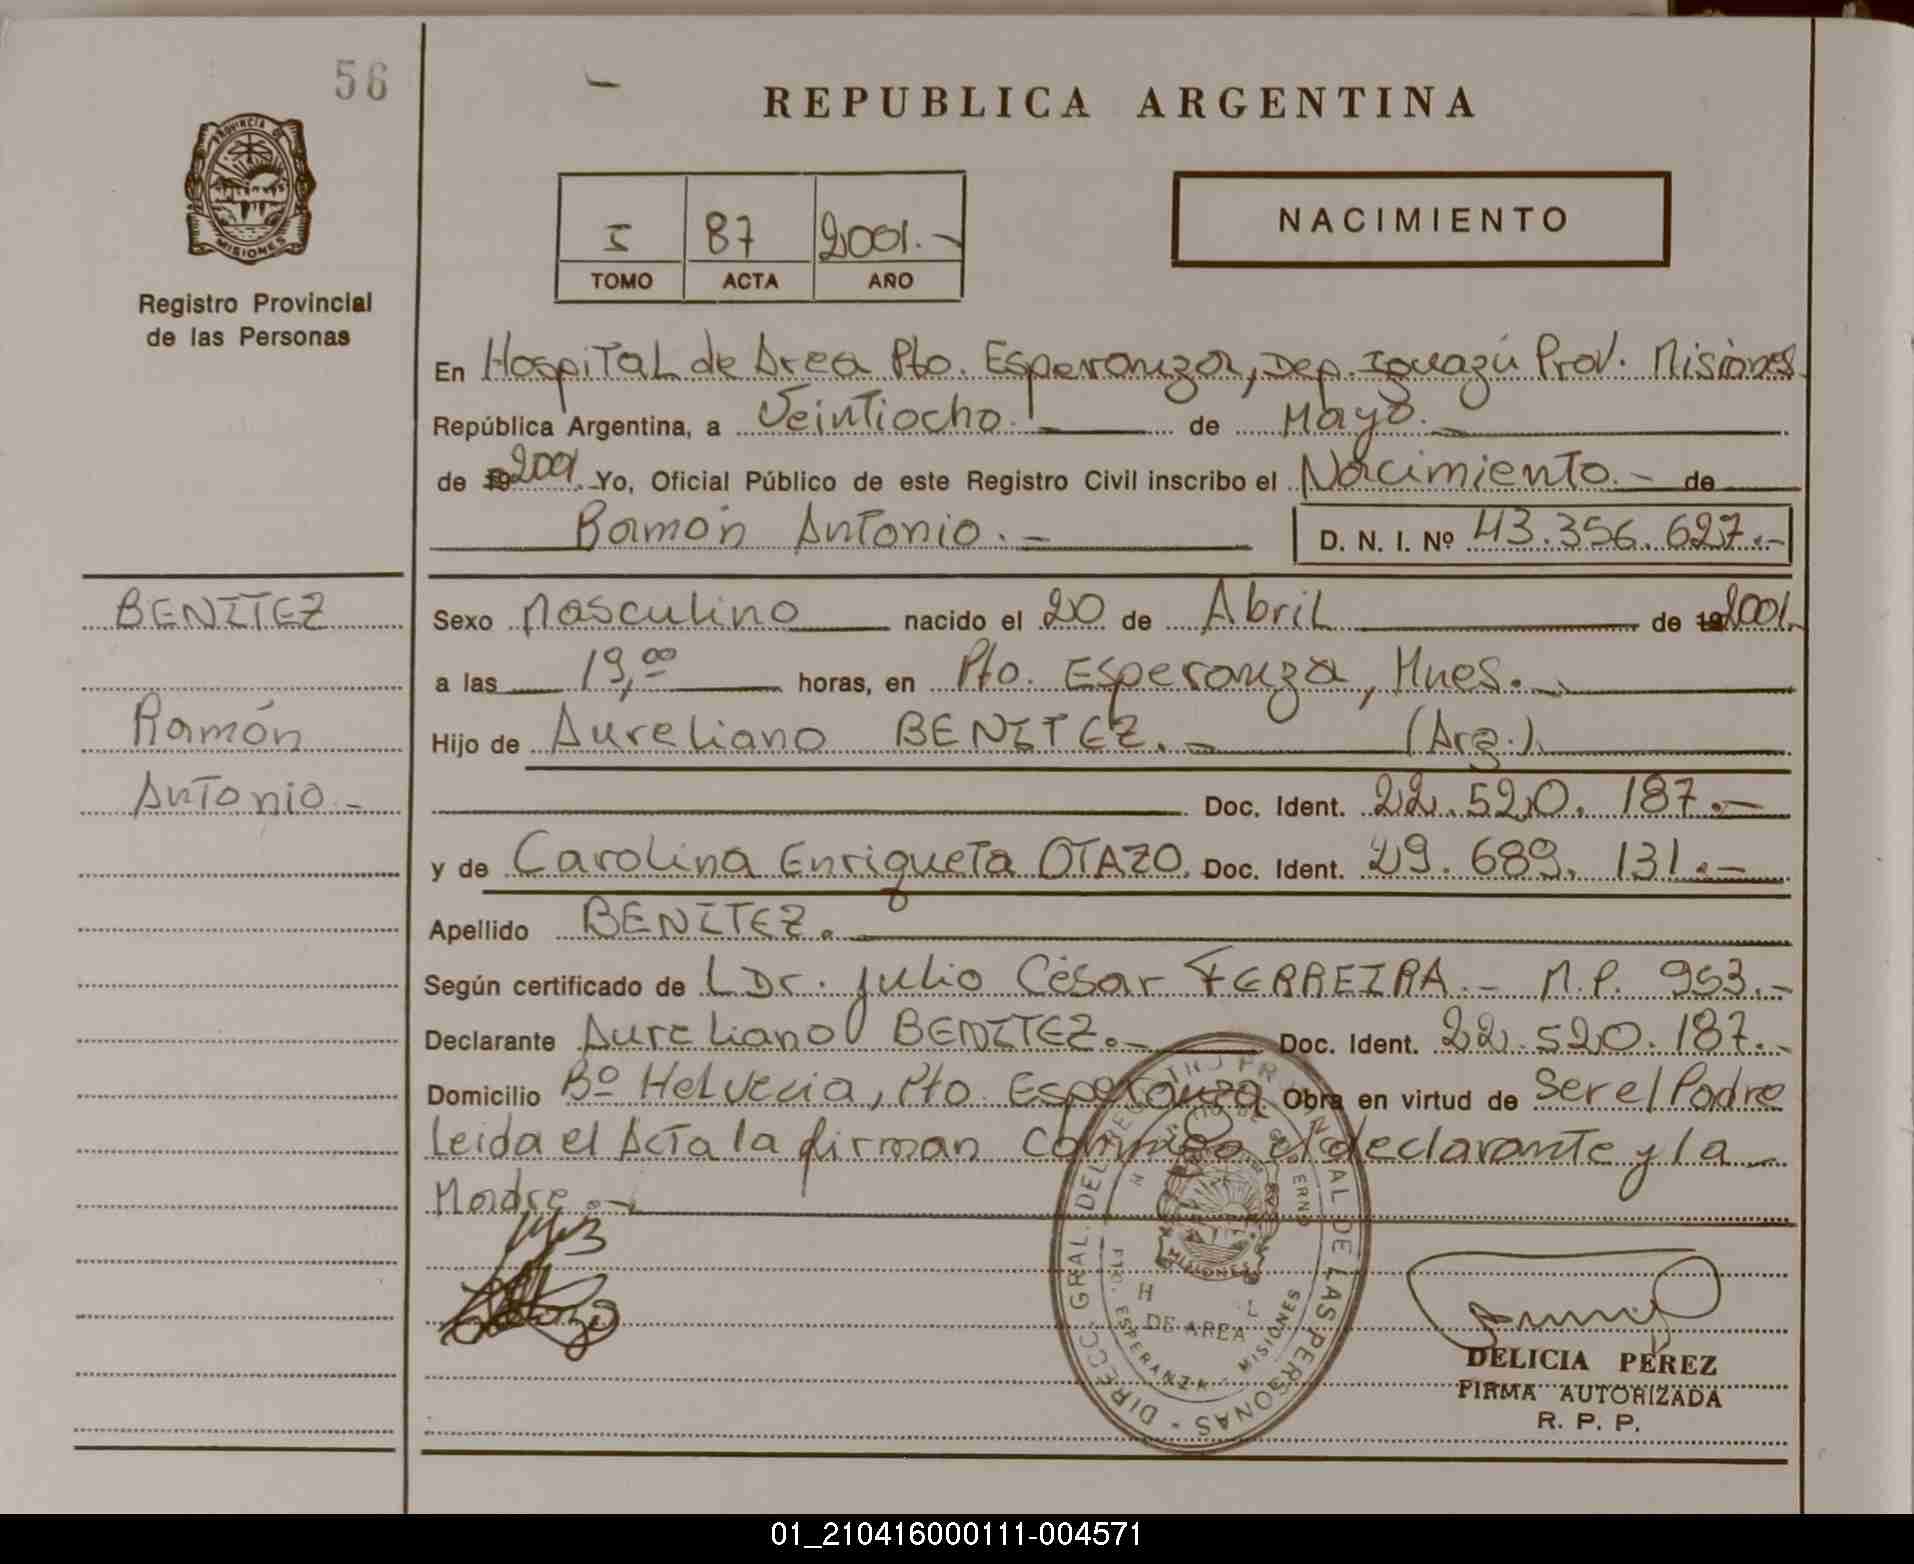 56
PROVINCIA DE
MISIONES
Registro Provincial
de las Personas
REPUBLICA ARGENTINA
I 87 2001.-
TOMO ACTA AÑO
NACIMIENTO
En Hospital de Area Pto. Esperanza, Dep. Iguazú Prov. Misiones.
República Argentina, a Veintiocho. de Mayo.
de 192001. Yo, Oficial Público de este Registro Civil inscribo el Nacimiento.- de
Ramón Antonio.- D. N. I. Nº 43.356.627.-
BENITEZ
Ramón
Antonio.-
Sexo Masculino nacido el 20 de Abril de 192001.
a las 19,00 horas, en Pto. Esperanza, Mnes.
Hijo de Aureliano BENITEZ.- (Arg.).
Doc. Ident. 22.520.187.-
y de Carolina Enriqueta OTAZO. Doc. Ident. 29.689.131.-
Apellido BENITEZ.
Según certificado de L Dr. Julio César FERREIRA.- M.P. 953.-
Declarante Aureliano BENITEZ.- Doc. Ident. 22.520.187.-
Domicilio Bº Helvecia, Pto. Esperanza Obra en virtud de Ser el Padre
Leida el Acta la firman conmigo el declarante y la
Madre.-
DIRECC. GRAL. DEL REGISTRO PROVINCIAL DE LAS PERSONAS
MISIONES
DE AREA
PTO. ESPERANZA - MISIONES
DELICIA PEREZ
FIRMA AUTORIZADA
R. P. P.
01_210416000111-004571